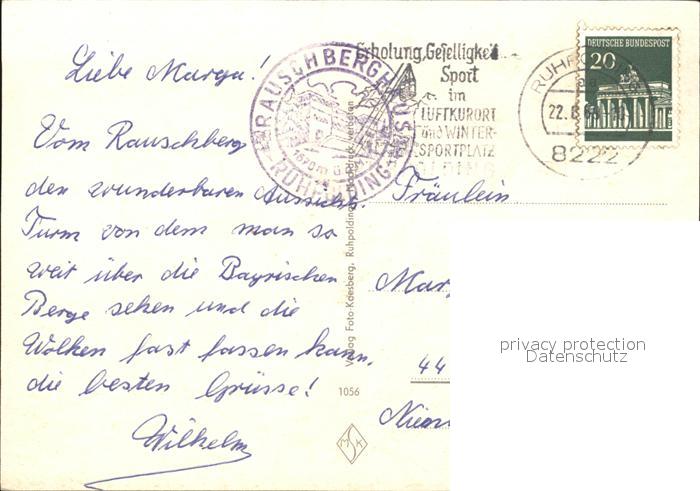 Liebe Marga!
Vom Rauschberg
den wunderbaren Aussichts
Turm von dem man so
weit über die Bayrischen
Berge sehen und die
Wolken fast fassen kann.
die besten Grüsse!
Wilhelm
RAUSCHBERGHAUS
1670m ü
RUHPOLDING
Erholung, Geselligkeit
Sport
im
LUFTKURORT
und WINTER-
SPORTPLATZ
22.8
8222
DEUTSCHE BUNDESPOST
20
Foto-Kdesberg, Ruhpolding
1056
MSK
Fräulein
Mar
44
privacy protection
Datenschutz